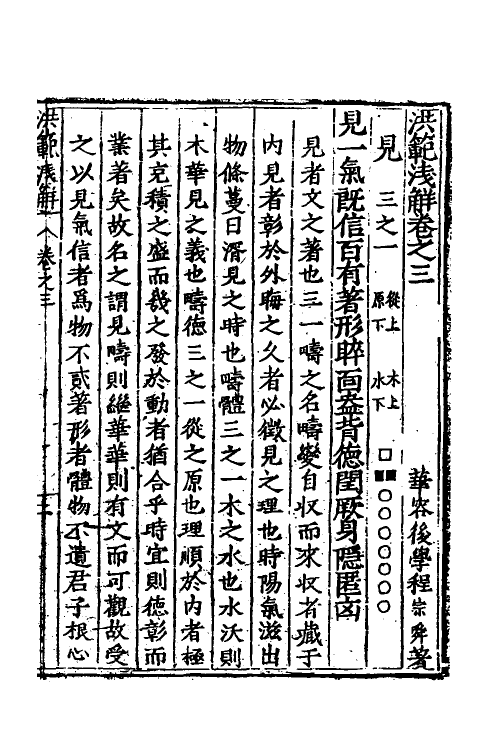 洪範浅解卷之三
華容後學程宗舜著
見 三之一 從上 原下 木上 水下
見一氣既信百有著形睟面盎背德閏厥身隱匿卤
見者文之著也三一疇之名疇變自収而來収者藏于
内見者彰於外晦之久者必徴見之理也時陽氣滋出
物條蔓日滑見之時也疇體三之一木之水也水沃則
木華見之義也疇德三之一從之原也理順於内者極
其充積之盛而發之發於動者猶合乎時宜則德彰而
業著矣故名之謂見疇則繼華華則有文而可觀故受
之以見氣信者爲物不貳著形者體物不遺君子根心
洪範浅解 卷之三 一